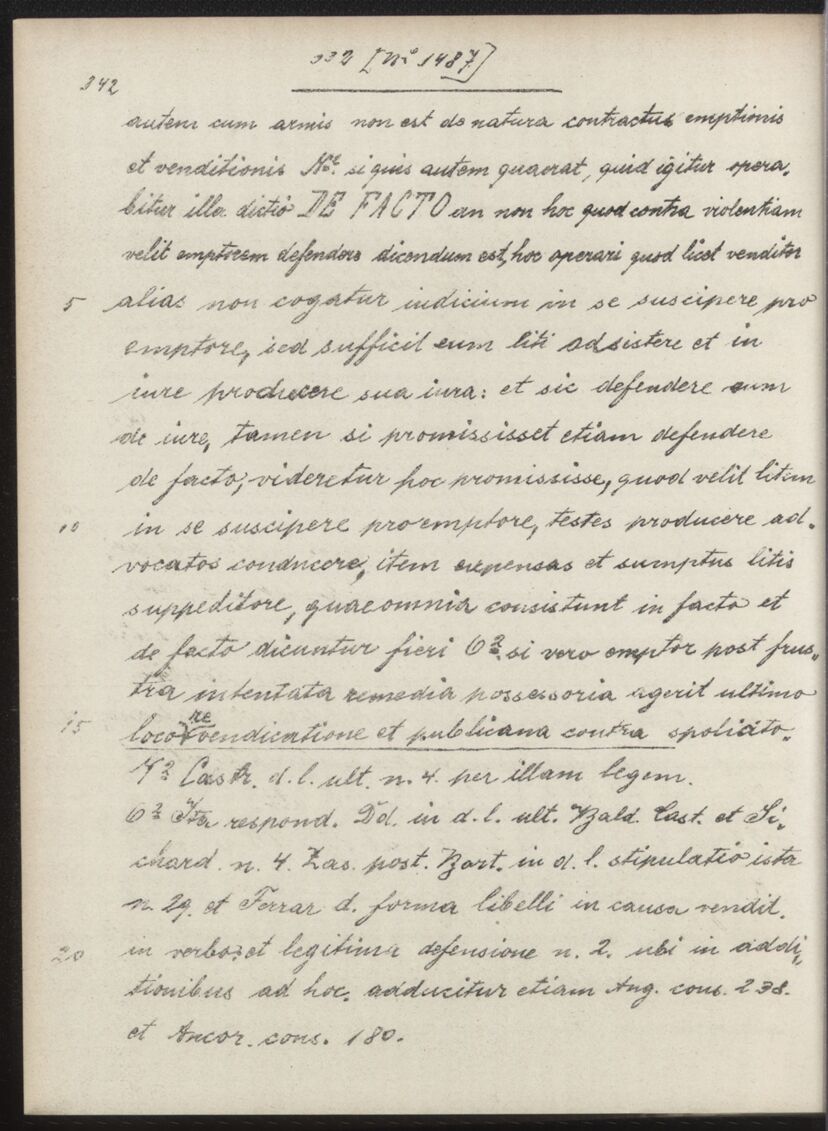 332 [Nº 1487]
342
autem cum armis non est de natura contractus emptionis
et venditionis si quis autem quaerat, quid igitur opera-
bitur illa dictio DE FACTO an non hoc quod contra violentiam
velit emptorem defendere dicendum est, hoc operari quod licet venditor
5 alias non cogatur iudicium in se suscipere pro
emptore, sed sufficit eum liti adsistere et in
iure producere sua iura: et sic defendere eum
de iure, tamen si promississet etiam defendere
de facto, videretur hoc promississe, quod velit litem
10 in se suscipere pro emptore, testes producere ad-
vocatos conducere, item expensas et sumptus litis
suppeditore, quae omnia consistunt in facto et
de facto dicuntur fieri 6² si vero emptor post frus-
tra intentata remedia possessoria agerit ultimo
15 loco revendicatione et publicana contra spoliato-
7² Castr. d. l. ult. n. 4. per illam legem.
6² Ita respond. Dd. in d. l. ult. Bald. Cast. et Si-
chard. n. 4. Zas. post. Bart. in d. l. stipulatio ista
n. 29. et Ferrar d. forma libelli in causa vendit.
20 in verbo: et legitima defensione n. 2. ubi in addi-
tionibus ad hoc. adducitur etiam Ang. cons. 238.
et Ancor. cons. 180.